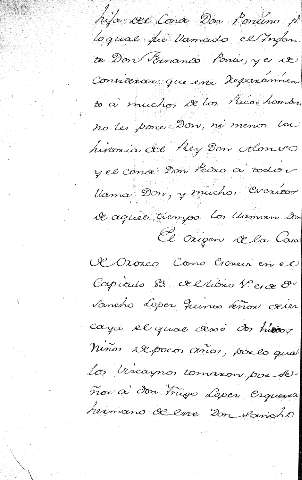 hijo del Conde Don Ponino p.
lo qual fue llamado el Infan-
te Don Fernando Ponze, y es de
considerar que este repartimien-
to á muchos de los Ricos hombres
no les pone Don, ni menos la
historia del Rey Don Alonso
y el conde Don Pedro a todos
llama Don, y muchos escritos
de aquel tiempo los llaman Don
El Origen de la Casa
de Orozco como escrivi en el
Capitulo 83 del libro V. es de D.
Sancho Lopez quinto señor de viz-
caya el qual dexó dos hijos
Niños de pocos años, por lo qual
los Vizcaynos tomaron por Se-
ñor á Don Yñigo Lopez Ezquerra
hermano de este Don Sancho